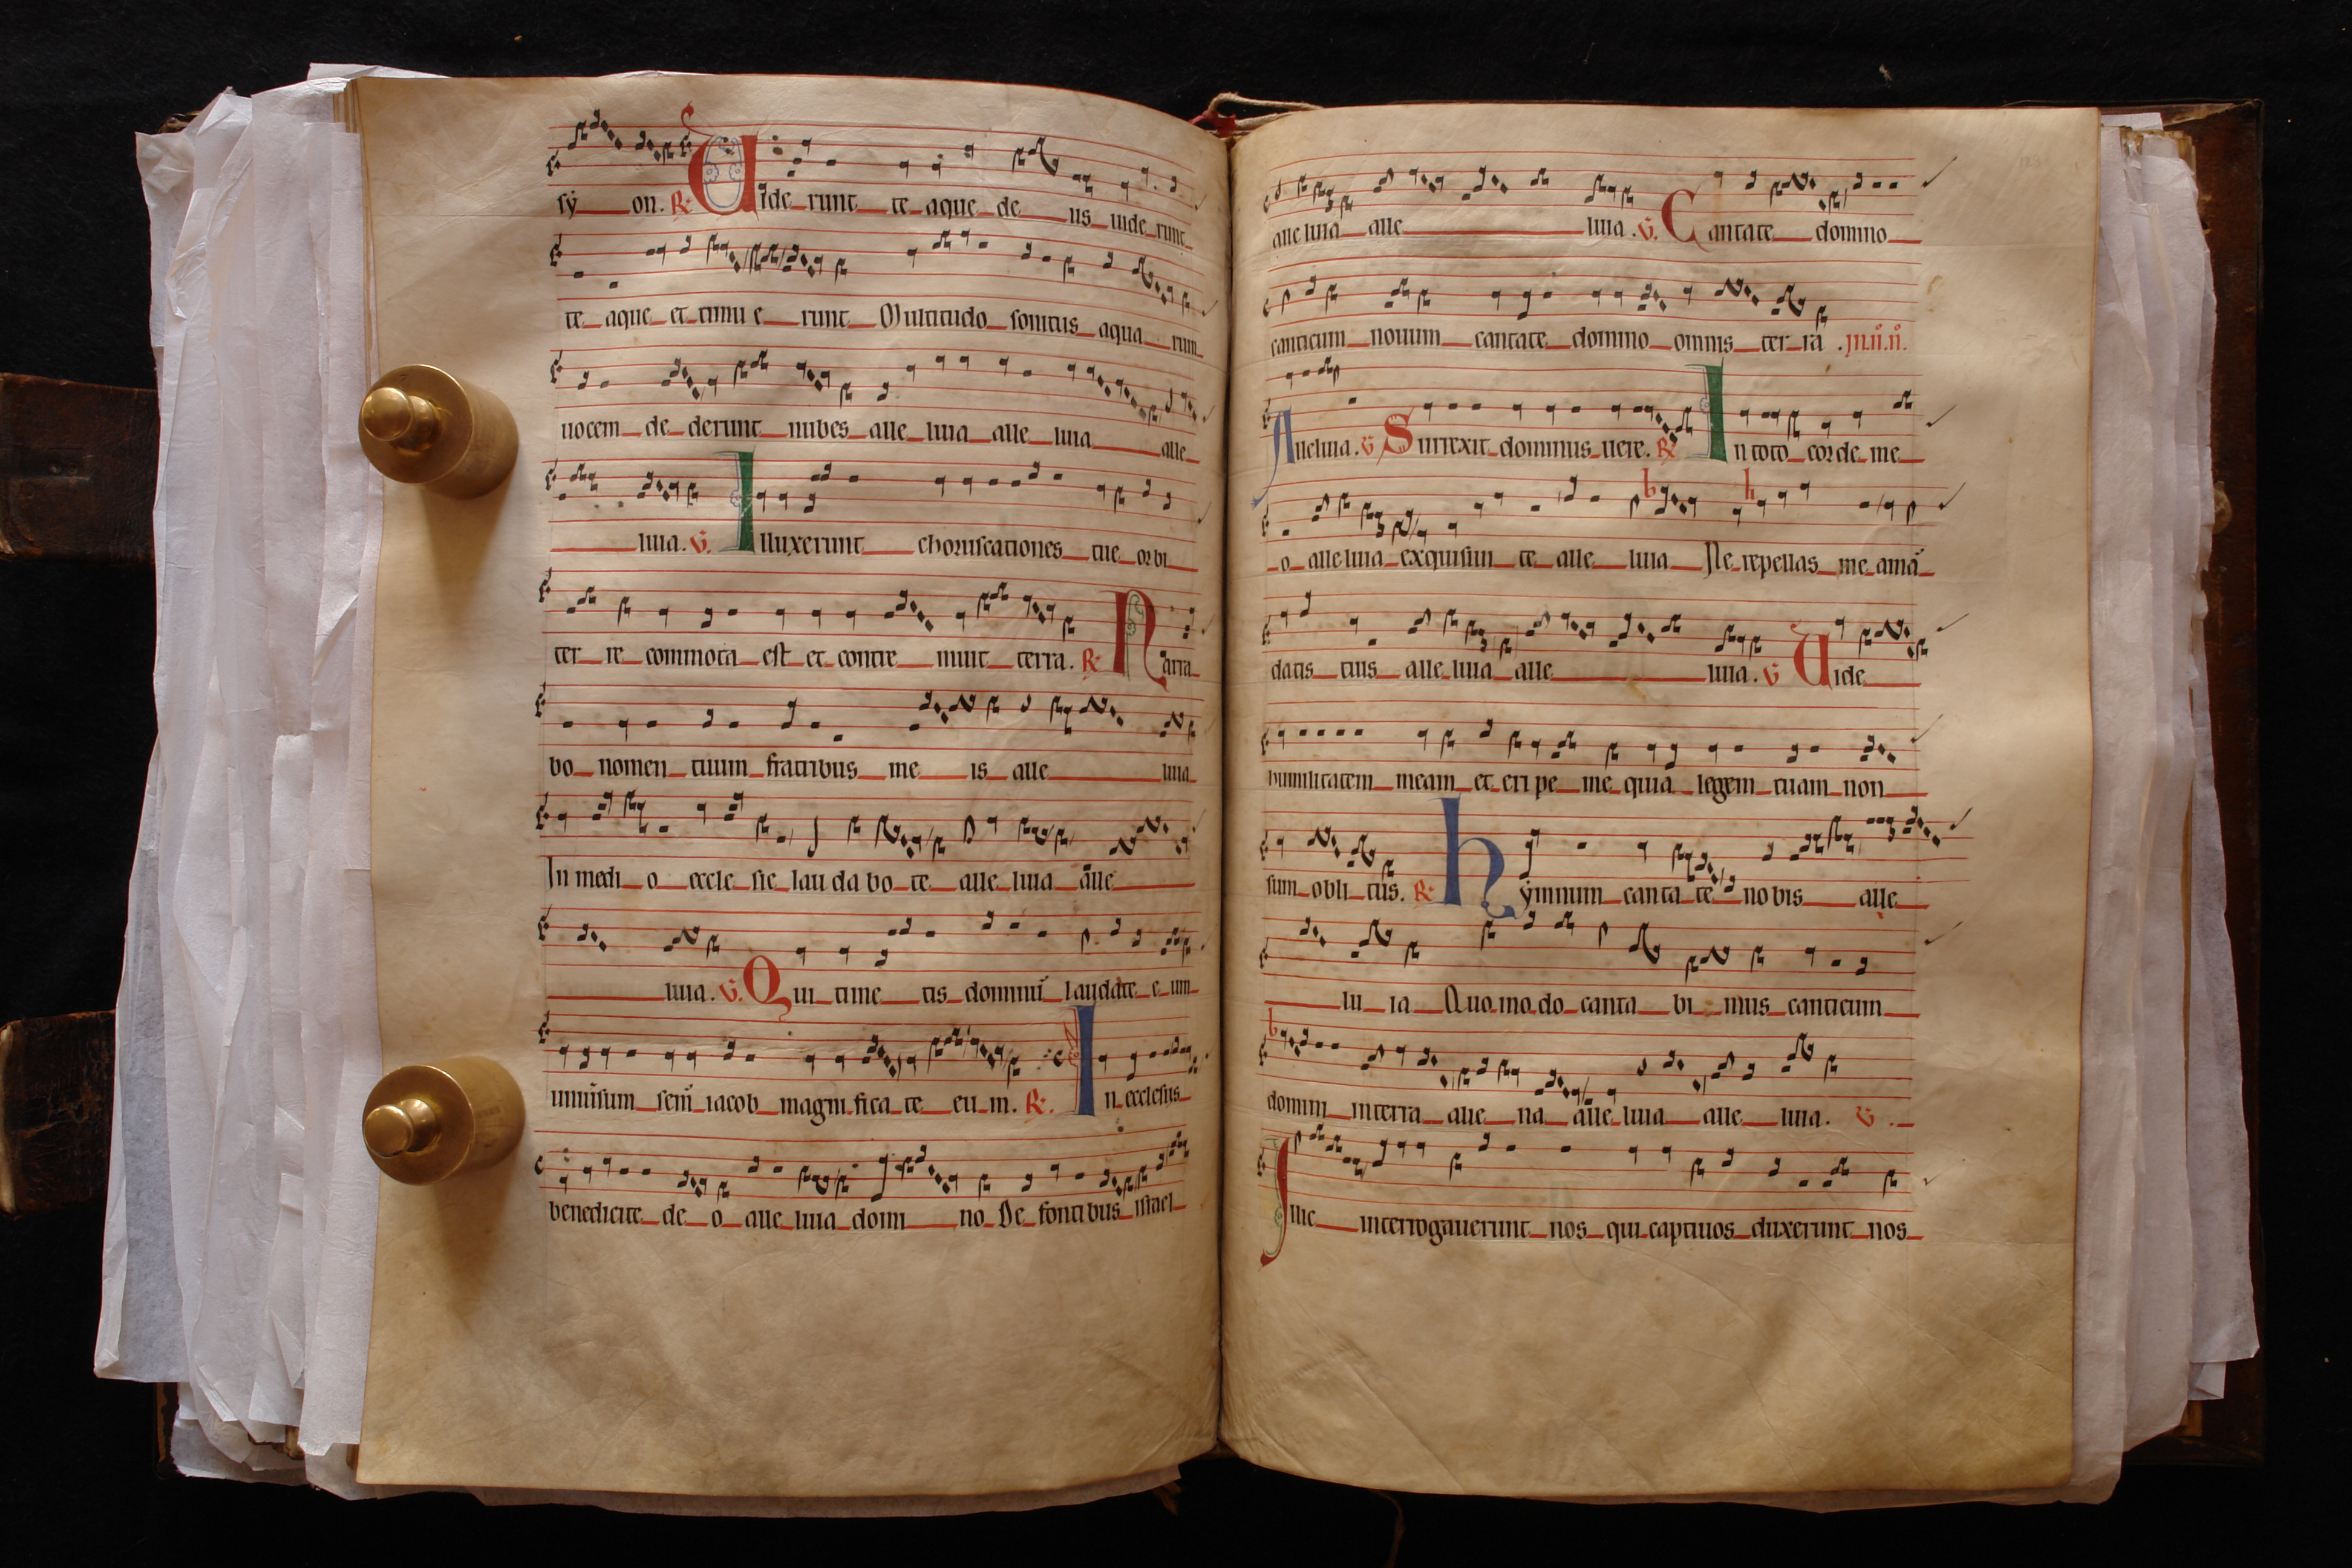 sẏ on. R. Uide runt te aque de us uide runt
te aque et timu e runt Multitudo sonitus aqua rum
uocem de derunt nubes alle luia alle luia alle
luia. V. Illuxerunt choruscationes tue orbi
ter re commota est et contre muit terra. R. Narra
bo nomen tuum fratribus me is alle luia
In medi o eccle sie lau da bo te alle luia alle
luia. V. Qui time tis dominū laudate e um
uniūsum semͥ iacob magni fica te eu m. R. In ecclesiis
benedicite de o alle luia domi no De fonti bus israel
alle luia alle luia. V. Cantate domino
canticum nouum cantate domino omnis ter ra .
Alleluia. V Surrexit dominus uere. R In toto corde me
o alle luia exquisiui te alle luia Ne repellas me amā
datis tuis alle luia alle luia. V Uide
humilitatem meam et eri pe me quia legem tuam non
sum obli tus. R. hẏmnum canta te nobis alle
lu ia Quo mo do canta bi mus canticum
domini in terra alie na alle luia alle luia. V .
Illic interrogauerunt nos qui captiuos duxerunt nos